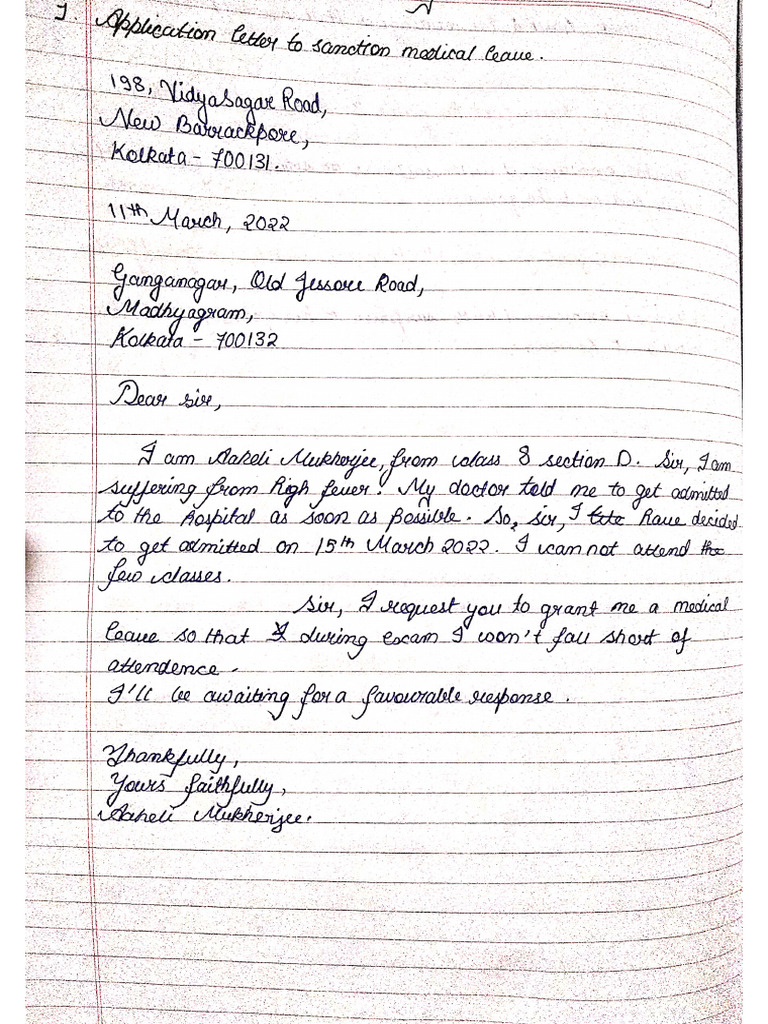 1. Application letter to sanction medical leave.
198, Vidyasagar Road,
New Barrackpore,
Kolkata - 700131.
11th March, 2022
Ganganagar, Old Jessore Road,
Madhyagram,
Kolkata - 700132
Dear sir,
I am Aaheli Mukherjee, from class 8 section D. Sir, I am
suffering from high fever. My doctor told me to get admitted
to the hospital as soon as possible. So, sir, I have decided
to get admitted on 15th March 2022. I can not attend the
few classes.
Sir, I request you to grant me a medical
leave so that during exam I won't fall short of
attendence.
I'll be awaiting for a favourable response.
Thankfully,
Yours faithfully,
Aaheli Mukherjee.